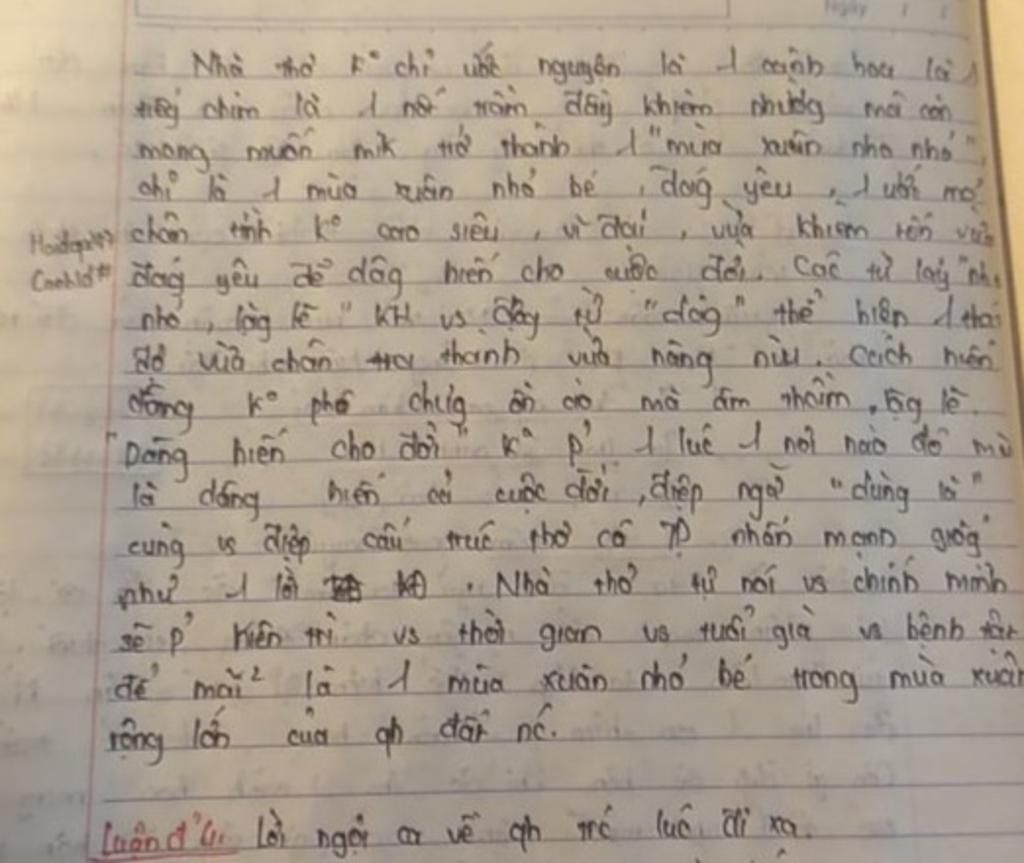 Ngày
Nhà thơ K° chỉ ước nguyện là 1 cành hoa là
tiếg chim là 1 nốt trầm đầy khiêm nhường mà còn
mong muốn mik trở thành 1 "mùa xuân nho nhỏ",
chỉ là 1 mùa xuân nhỏ bé, đág yêu, 1 ước mơ
chân tình K° cao siêu, vĩ đại, vừa khiêm tốn vừa
đág yêu để dâg hiến cho cuộc đời. Các từ láy "nho
nhỏ, lặg lẽ" KH vs độg từ "dâg" thể hiện 1 thái
độ vừa chân thành vừa nâng niu. Cách hiến
dâng K° phô chươg ồn ào mà âm thầm, lặg lẽ.
"Dâng hiến cho đời" K° p' 1 lúc 1 nơi nào đó mà
là dâng hiến cả cuộc đời, điệp ngữ "dùng là"
cùng vs điệp cấu trúc thơ có nhấn mạnh giốg
như 1 lời. Nhà thơ tự nói vs chính mình
sẽ p' kiên trì vs thời gian vs tuổi già vs bệnh tật
để mãi² là 1 mùa xuân nhỏ bé trong mùa xuân
rộng lớn của qh đất nc.
Luận đ' 4: Lời ngợi ca về qh trc lúc đi xa.